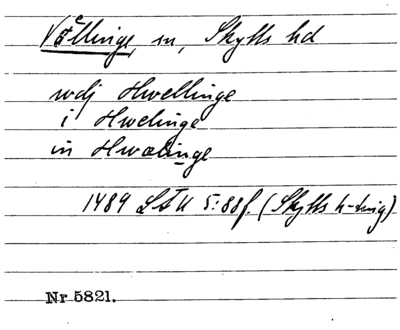 Vällinge, sn, Skytts hd
wdj Hwellinge
i Hwelinge
in Hwælinge
1489 LÄU 5:88f. (Skytts h-ting)
Nr 5821.